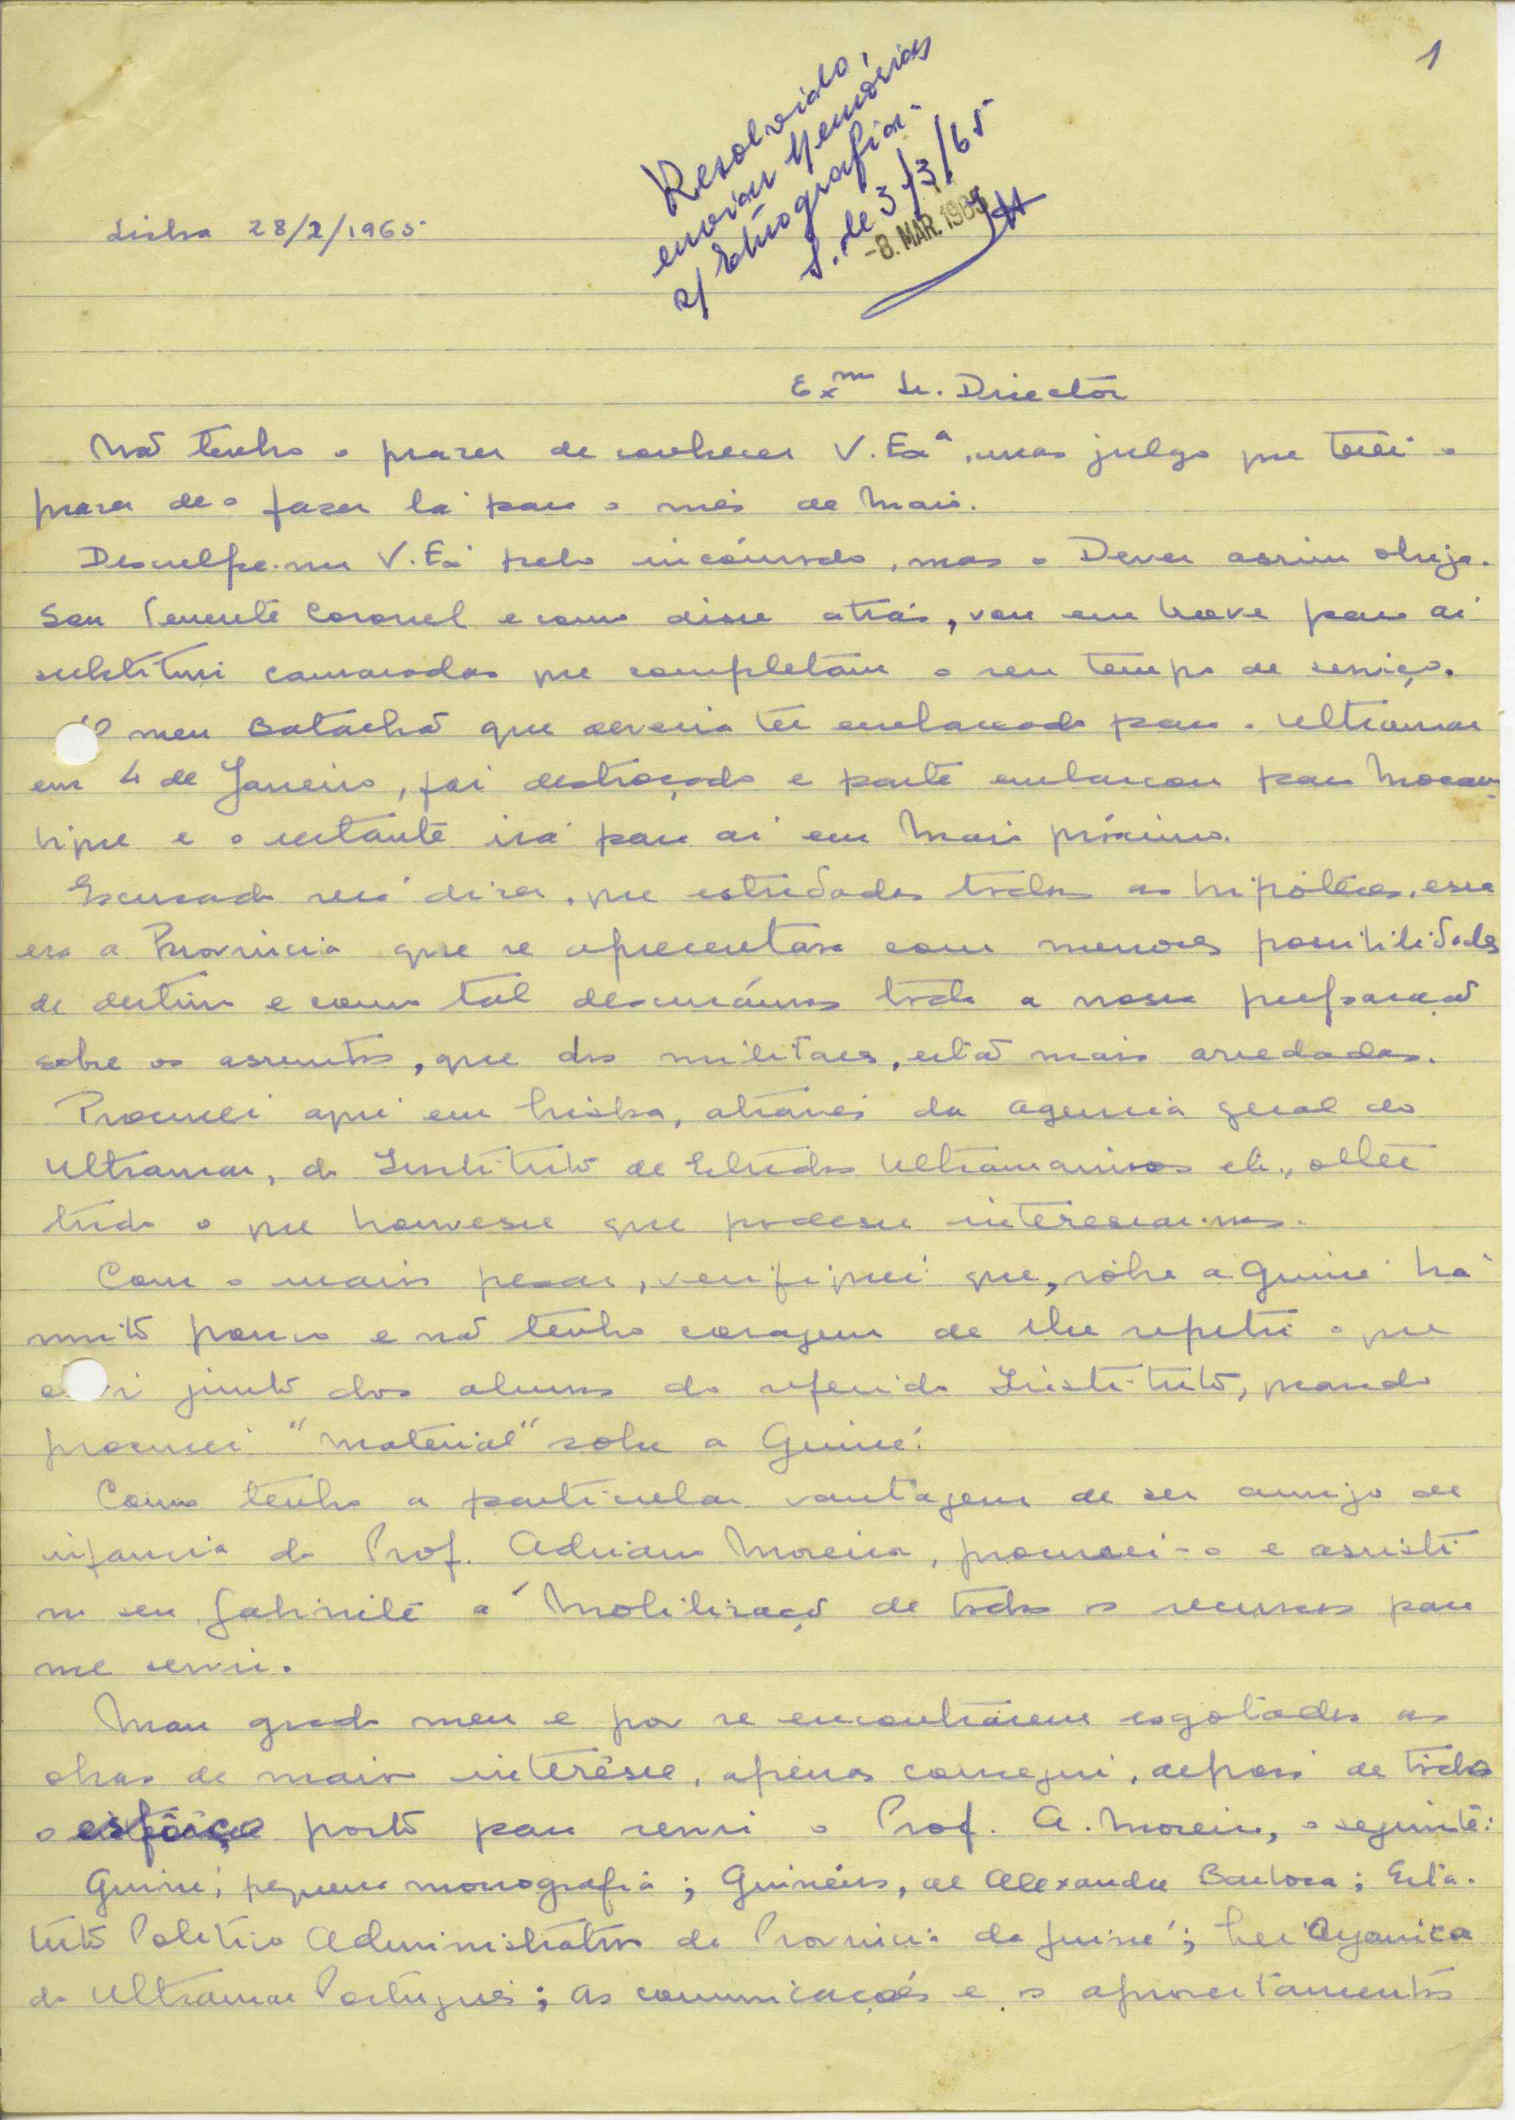 1
Resolvido,
enviar Memórias
s/ Etnografia.
S. de 3/3/65
-8. MAR. 1965
Lisboa 28/2/1965
Exmo Sr. Director
Não tenho o prazer de conhecer V. Exª, mas julgo que terei o
prazer de o fazer lá para o mês de Maio.
Desculpe-me V. Exª pelo incómodo, mas o Dever assim obriga.
Sou Tenente Coronel e como disse atrás, vou em breve para aí
substituir camaradas que completam o seu tempo de serviço.
O meu Batalhão que deveria ter embarcado para o Ultramar
em 4 de Janeiro, foi destroçado e parte embarcou para Moçam
bique e o restante irá para aí em Maio próximo.
Escusado será dizer, que estudadas todas as hipóteses, essa
era a Provincia que se apresentava com menores possibilidades
de destino e como tal descurámos toda a nossa preparação
sobre os assuntos, que dos militares, estão mais arredados.
Procurei aqui em Lisboa, através da Agencia Geral do
Ultramar, do Instituto de Estudos Ultramarinos etc., obter
tudo o que houvesse que podesse interessar-nos.
Com o maior pesar, verifiquei que, sobre a Guiné há
muito pouco e não tenho coragem de lhe repetir o que
ouvi junto dos alunos do referido Instituto, quando
procurei "material" sobre a Guiné.
Como tenho a particular vantagem de ser amigo de
infancia do Prof. Adriano Moreira, procurei-o e assisti
no seu gabinete à Mobilização de todos os recursos para
me servir.
Mau grado meu e por se encontrarem esgotadas as
obras de maior interêsse, apenas consegui, depois de todo
o esfôrço posto para servir o Prof. A. Moreira, o seguinte:
Guiné, pequena monografia; Guinéus, de Alexandre Barbosa; Esta-
tuto Politico Administrativo da Provincia da Guiné; Lei Organica
do Ultramar Português; As comunicações e os aproveitamentos